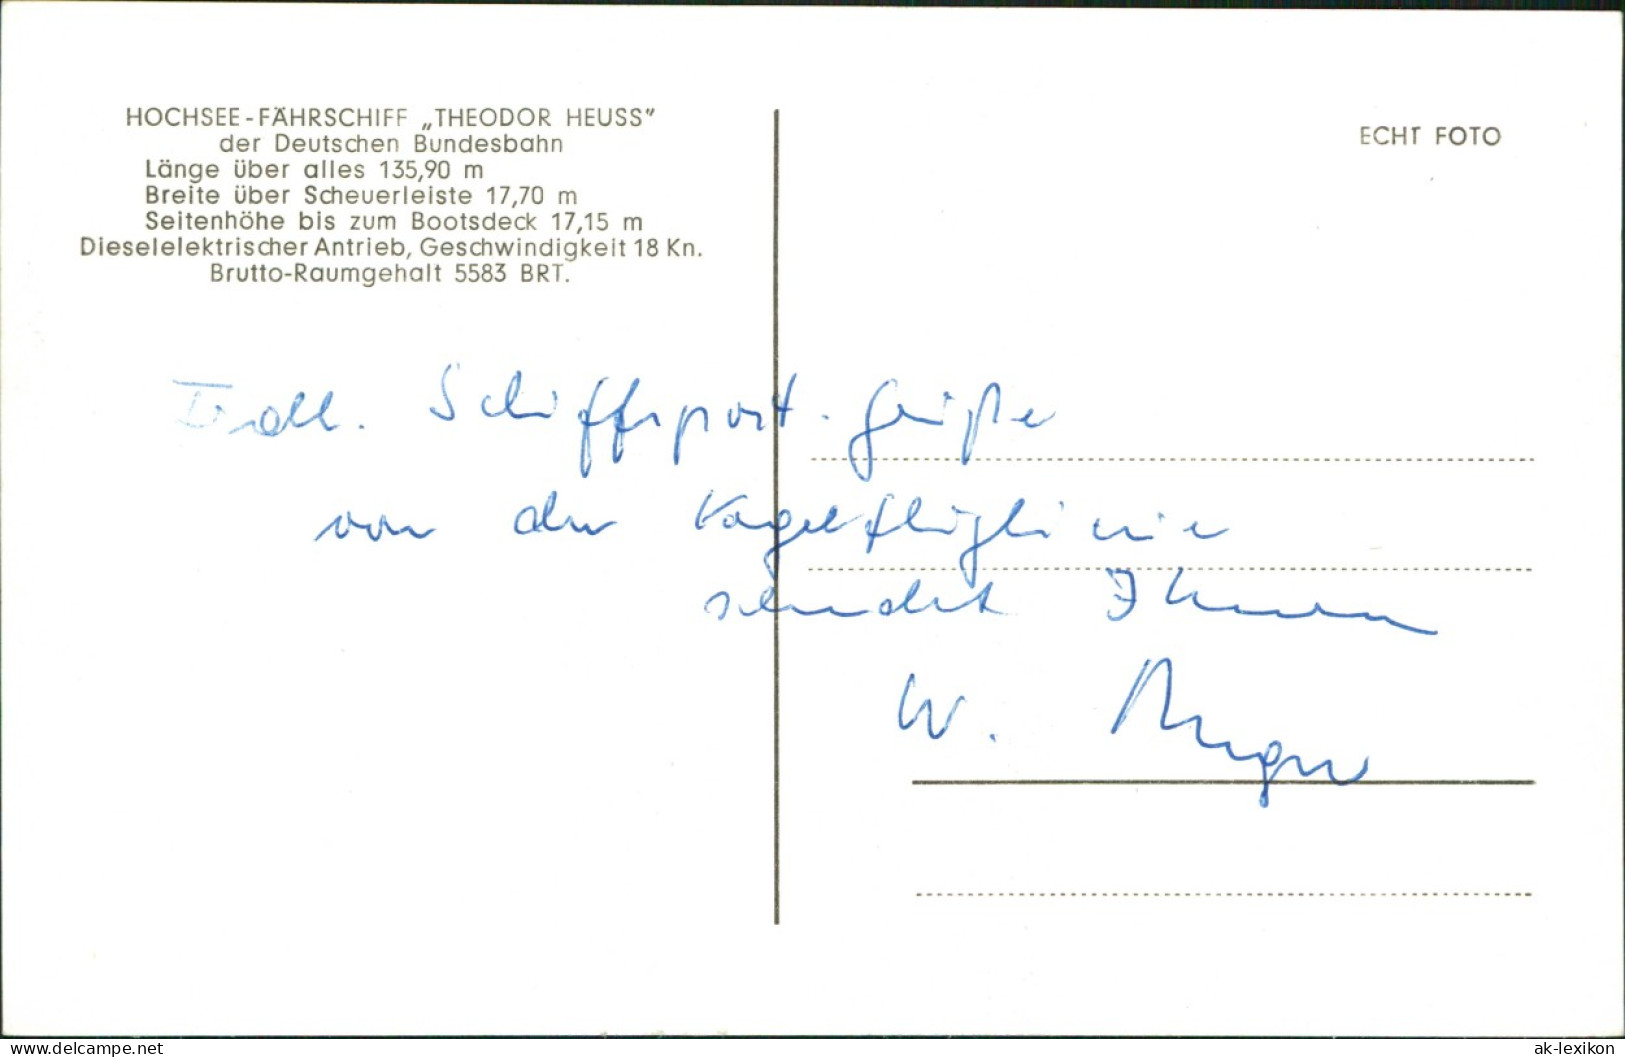 HOCHSEE-FÄHRSCHIFF „THEODOR HEUSS"
der Deutschen Bundesbahn
Länge über alles 135,90 m
Breite über Scheuerleiste 17,70 m
Seitenhöhe bis zum Bootsdeck 17,15 m
Dieselelektrischer Antrieb, Geschwindigkeit 18 Kn.
Brutto-Raumgehalt 5583 BRT.
ECHT FOTO
Frdl. Schiffspost-Grüße
von der Vogelfluglinie
sendet Ihnen
W.
www.delcampe.net
ak-lexikon